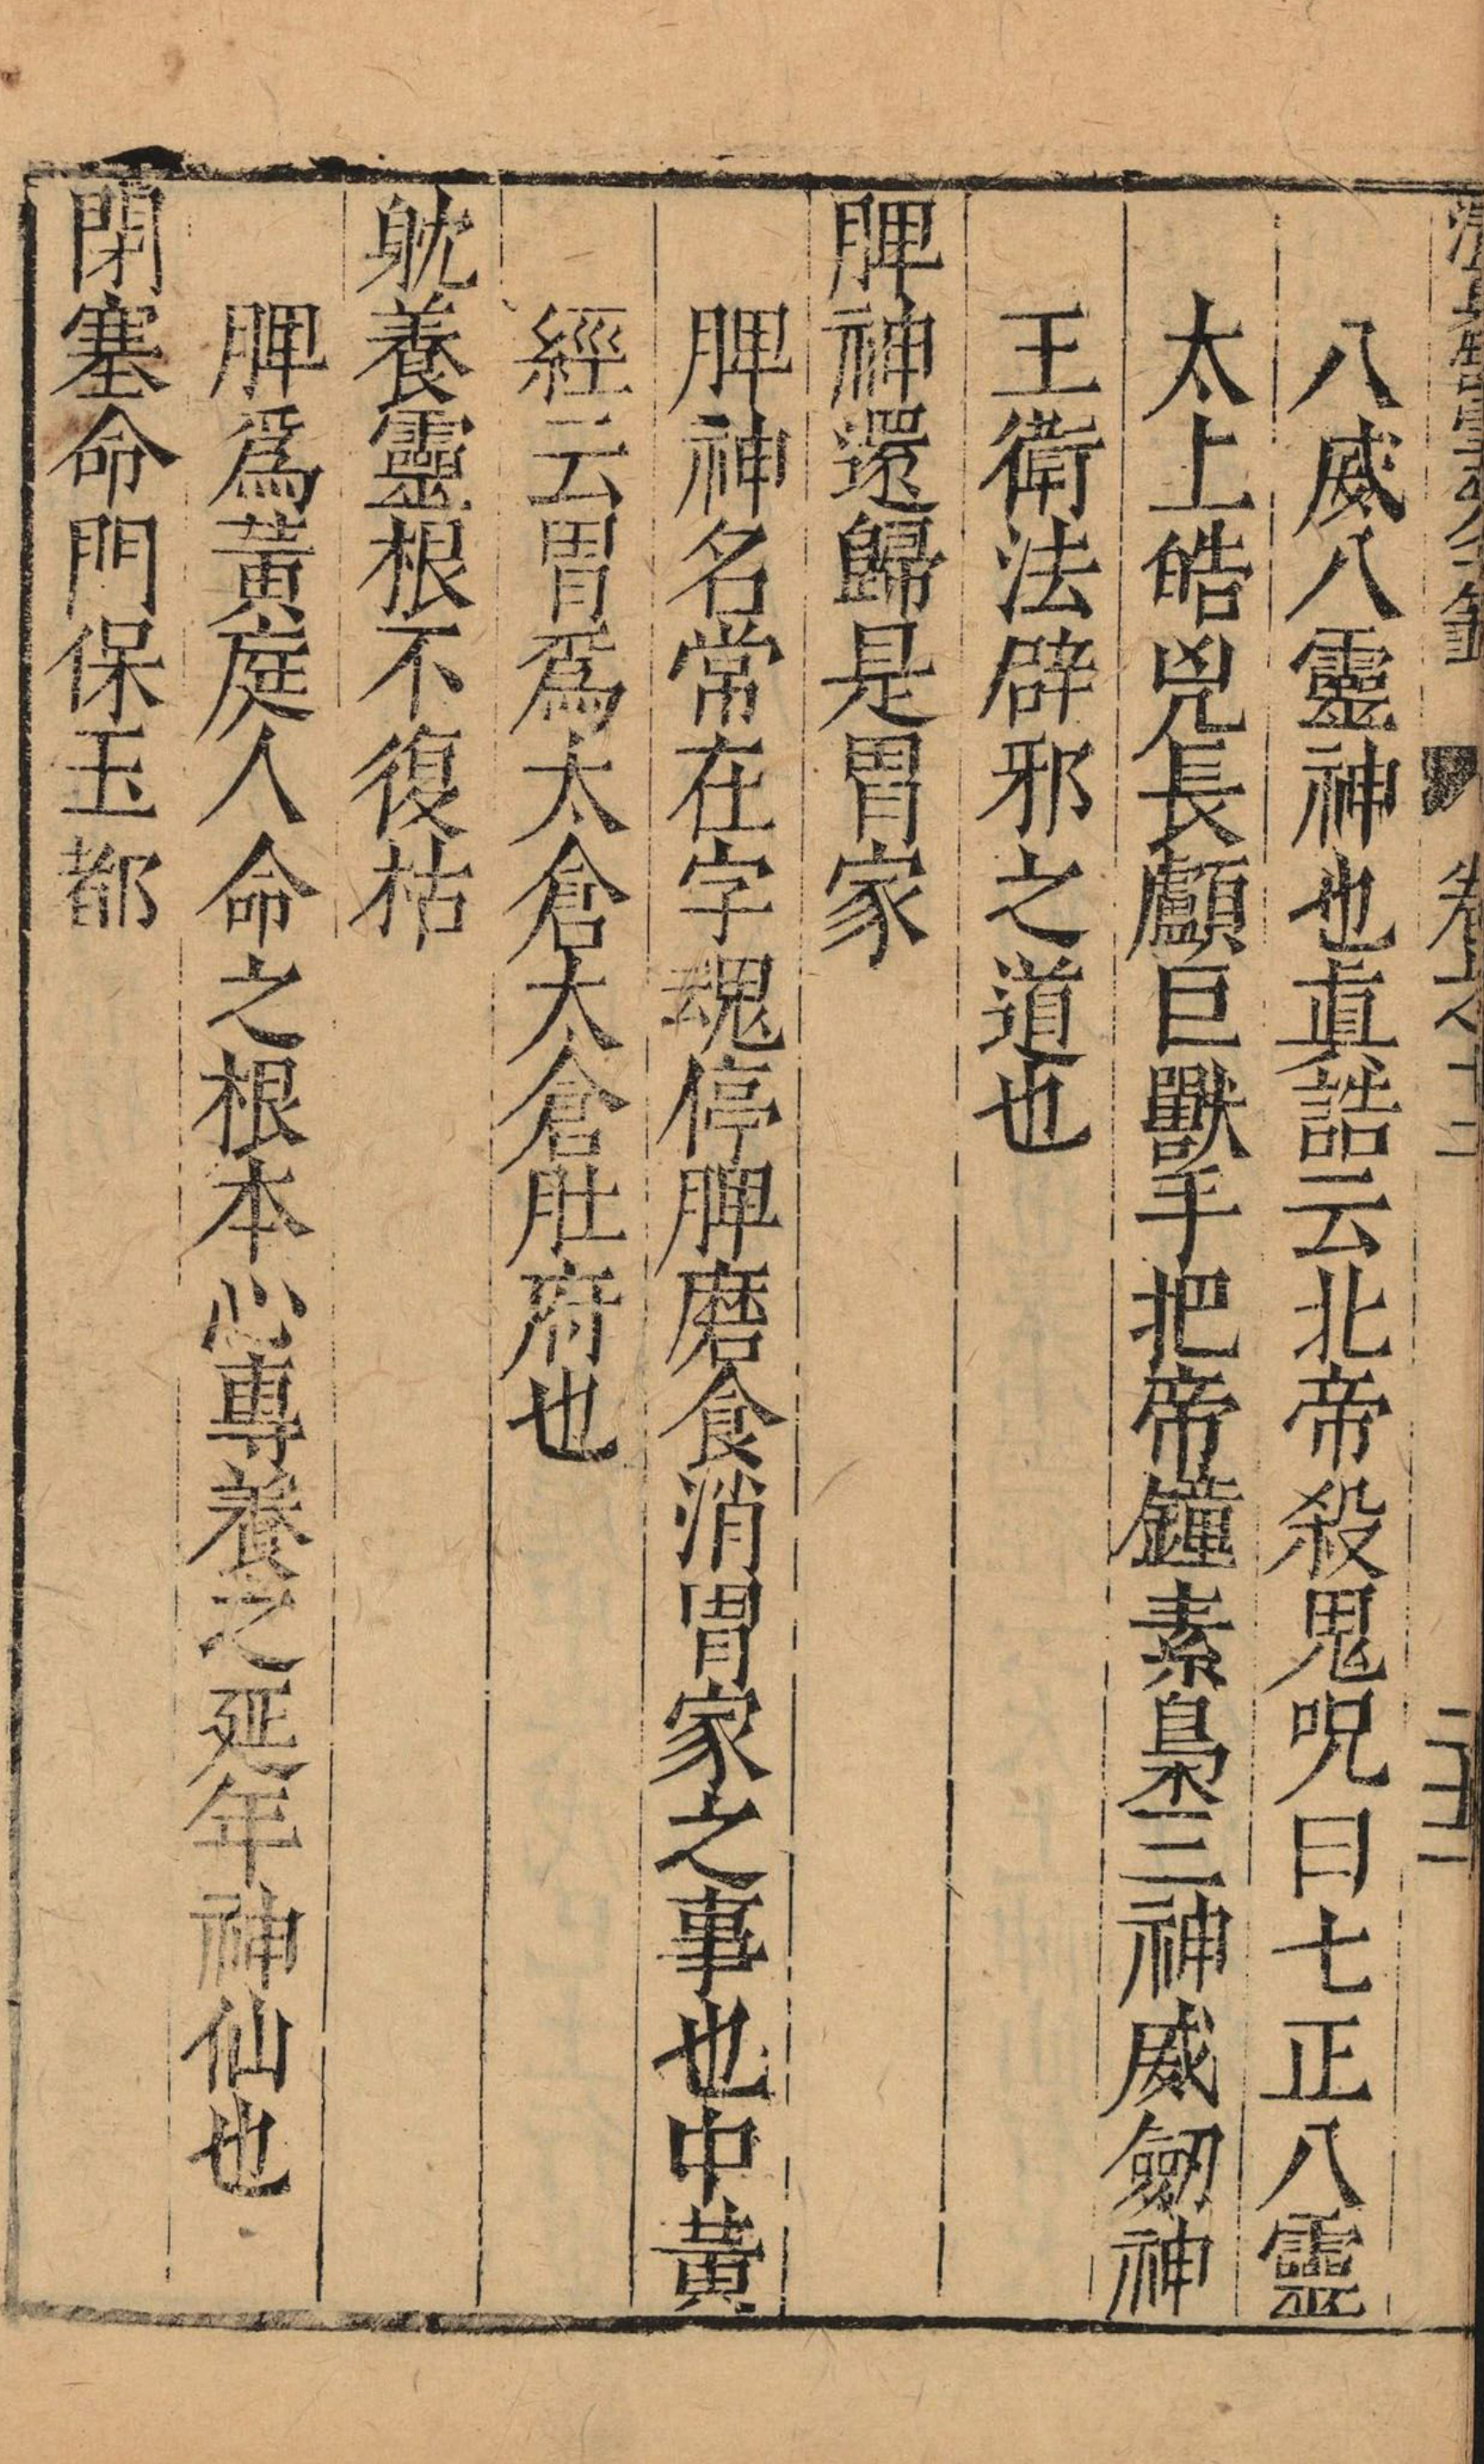 卷之十二
八威八靈神也眞誥云北帝殺鬼呪曰七正八靈
太上皓兇長顱巨獸手把帝鐘素梟三神威劒神
王衛法辟邪之道也
脾神還歸是胃家
脾神名常在字魂停脾磨食消胃家之事也中黃
經云胃爲太倉太倉肚府也
躭養靈根不復枯
脾爲黃庭人命之根本心專養之延年神仙也
閉塞命門保玉都